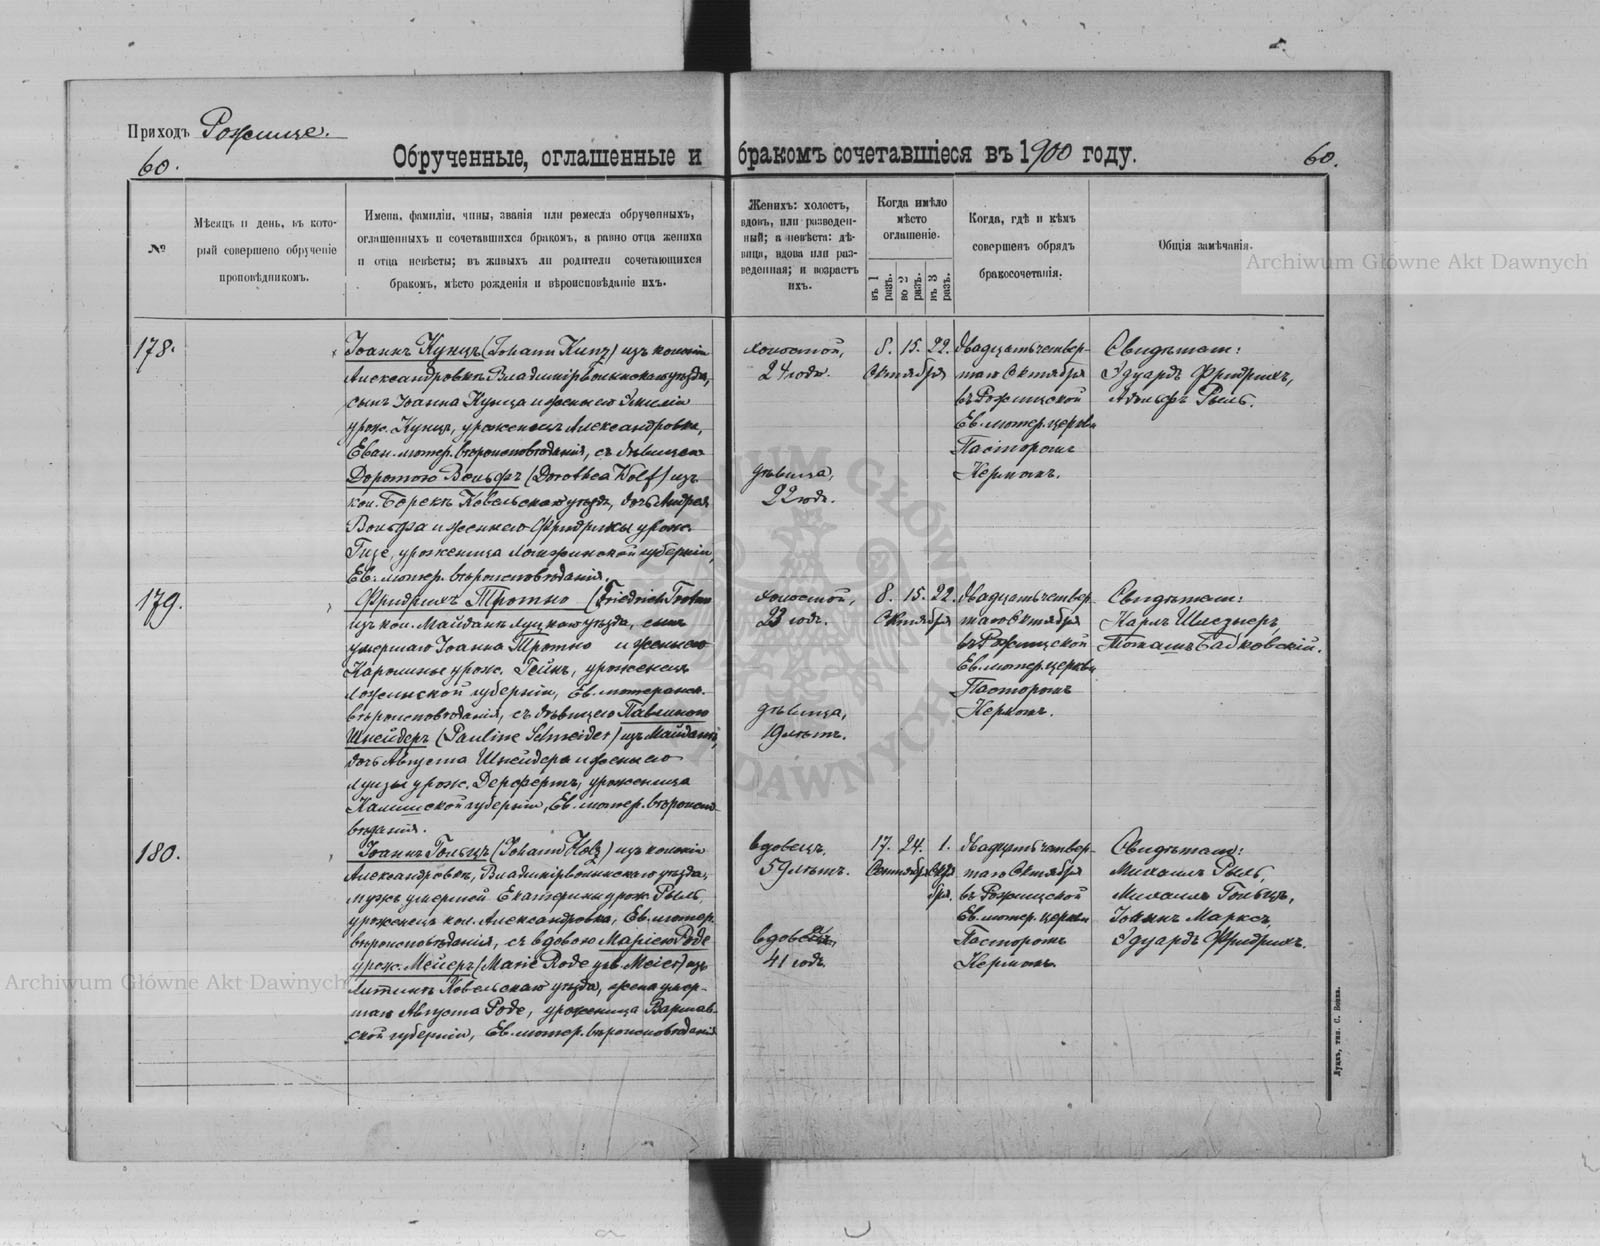 Приходъ Рожище.
60.
Обрученные, оглашенные и бракомъ сочетавшіеся въ 1900 году.
60.
№
Мѣсяцъ и день, въ кото-
рый совершено обрученіе
проповѣдникомъ.
Имена, фамиліи, чины, званія или ремесла обрученныхъ,
оглашенныхъ и сочетавшихся бракомъ, а равно отца жениха
и отца невѣсты; въ живыхъ ли родители сочетающихся
бракомъ, мѣсто рожденія и вѣроисповѣданіе ихъ.
Женихъ: холостъ,
вдовъ, или разведен-
ный; а невѣста: дѣ-
вица, вдова или раз-
веденная; и возрастъ
ихъ.
Когда имѣло
мѣсто
оглашеніе.
въ 1 разъ.
во 2 разъ.
въ 3 разъ.
Когда, гдѣ и кѣмъ
совершенъ обрядъ
бракосочетанія.
Общія замѣчанія.
Archiwum Główne Akt Dawnych
178.
Іоаннъ Кунцъ (Johann Kunz) изъ колоніи
Александровкѣ Владимірволынскаго уѣзда,
сынъ Іоанна Кунца и жены его Эмиліи
урож. Кунцъ, уроженецъ Александровки,
Еван. лютер. вѣроисповѣданія, съ дѣвицею
Доротею Вольфъ (Dorothea Wolf) изъ
кол. Борекъ Ковельскаго уѣзда, дочь Андрея
Вольфа и жены его Фридрики урож.
Гизе, уроженица Ломжинской губерніи,
Ев. лютер. вѣроисповѣданія.
холостой,
24 года.
дѣвица,
22 года.
8. 15. 22.
Октября
двадцать четвер-
таго Октября
въ Рожищской
Ев. лютер. церкви
Пасторомъ
Кермомъ.
Свидѣтели:
Эдуардъ Фридрихъ,
Адольфъ Рыль.
179.
Фридрихъ Тротно (Friedrich Trotno
изъ кол. Майданъ Луцкаго уѣзда, сынъ
умершаго Іоанна Тротно и жены его
Каролины урож. Гейнъ, уроженецъ
губерніи, Ев. лютеранск.
вѣроисповѣданія, съ дѣвицею Павлиною
Шнейдеръ (Pauline Schneider) изъ Майданъ,
дочь Августа Шнейдера и жены его
Луизы урож. Дерфертъ, уроженица
Калишской губерніи, Ев. лютер. вѣроиспо-
вѣданія.
холостой,
23 года.
дѣвица,
19 лѣтъ.
8. 15. 22.
Октября
двадцать четвер-
таго Октября
въ Рожищской
Ев. лютер. церкви
Пасторомъ
Кермомъ.
Свидѣтели:
Карлъ Шлезнеръ
Бадковскій.
180.
Іоаннъ Гольцъ (Johann Holz) изъ колоніи
Александровкѣ, Владимірволынскаго уѣзда,
мужъ умершей Екатерины урож. Рыль,
уроженецъ кол. Александровка, Ев. лютер.
вѣроисповѣданія, съ вдовою Маріею Роде
урож. Мейеръ (Marie Rode geb. Meier) изъ
Ковельскаго уѣзда, жена умер-
шаго Августа Роде, уроженица Варшав-
ской губерніи, Ев. лютер. вѣроисповѣданія
вдовецъ,
59 лѣтъ.
вдова,
41 года.
17. 24. 1.
Сентября Октя
бря.
двадцать четвер-
таго Октября
въ Рожищской
Ев. лютер. церкви
Пасторомъ
Кермомъ.
Свидѣтели:
Михаилъ Рыль,
Михаилъ Гольцъ,
Іоаннъ Марксъ,
Эдуардъ Фридрихъ.
Archiwum Główne Akt Dawnych
ARCHIWUM GŁÓWNE AKT DAWNYCH
Луцкъ, тип. С. Бокка.